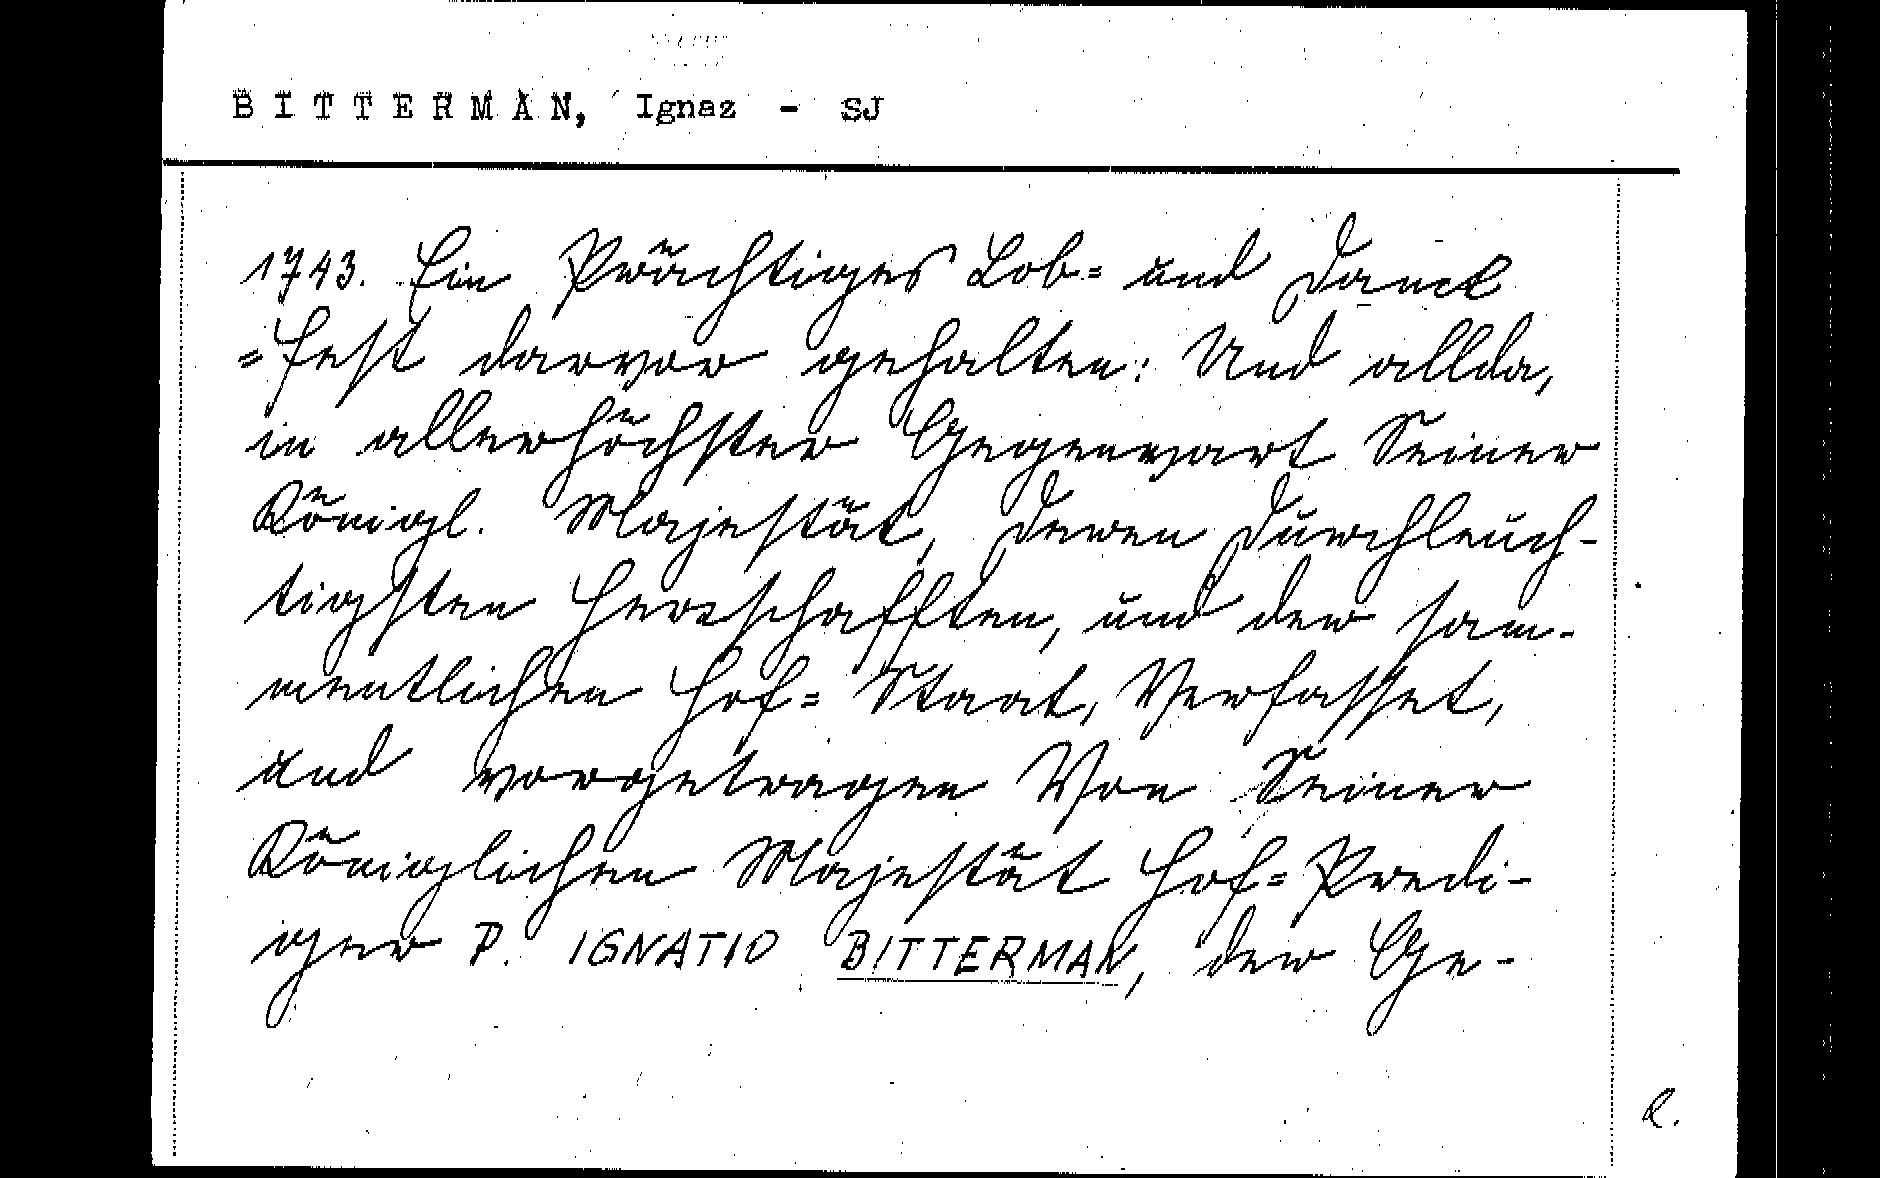 BITTERMAN, Ignaz - SJ
1743. Ein Prächtiges Lob= und Danck
=fest darvor gehalten: Und allda,
in allerhöchster Gegenwart Seiner
Königl. Majestät, deren Durchleuch-
tigsten Herrschafften, und der sam-
mentlichen Hof= Staat, Verfasset,
und vorgetragen Von Seiner
Königlichen Majestät Hof= Predi-
ger P. IGNATIO BITTERMAN, der Ge-